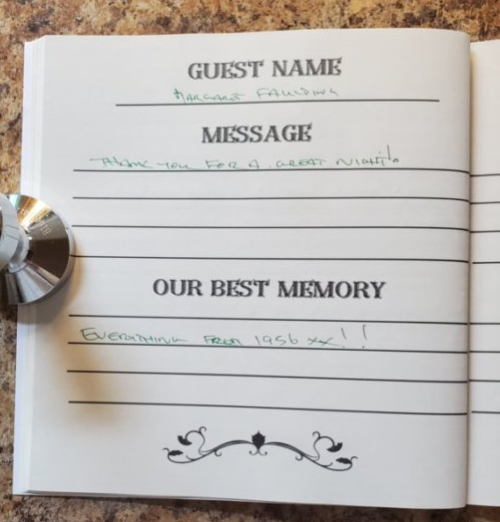 GUEST NAME
MARGARET FAULDING
MESSAGE
THANK YOU FOR A GREAT NIGHT!
OUR BEST MEMORY
EVERYTHING FROM 1956 xx!!